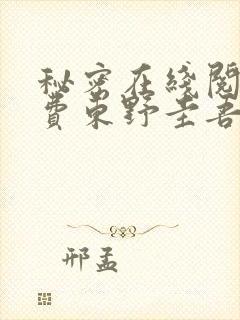 秘密在线阅
费东野圭吾
邢孟